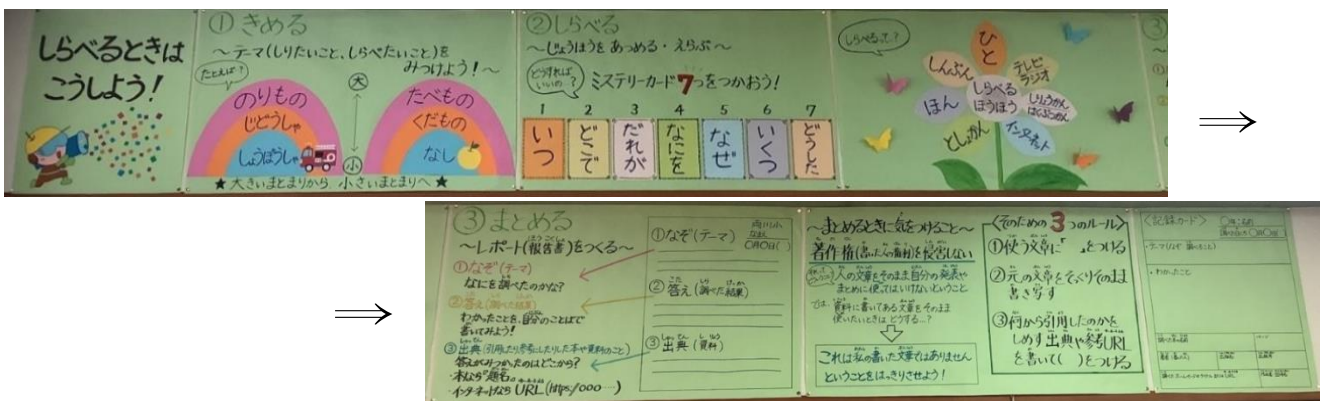 しらべるときは
こうしよう!
①きめる
~テーマ(しりたいこと、しらべたいこと)を
みつけよう!~
たとえば?
のりもの
じどうしゃ
しょうぼうしゃ
大
小
たべもの
くだもの
なし
★大きいまとまりから 小さいまとまりへ★
②しらべる
~じょうほうを あつめる・えらぶ~
どうすれば
いいの?
ミステリーカード7つをつかおう!
1 2 3 4 5 6 7
いつ
どこで
だれが
なにを
なぜ
いくつ
どうした
しらべるって?
ひと
しんぶん
テレビ
ラジオ
ほん
しらべる
ほうほう
しりょうかん
はくぶつかん
としょかん
インターネット
③まとめる
~レポート(報告書)をつくる~
①なぞ(テーマ)
なにを調べたのかな?
②答え(調べた結果)
わかったことを、自分のことばで
書いてみよう!
③出典(引用したり参考にしたりした本や資料のこと)
答えがみつかったのはどこから?
・本なら"題名"。
・インターネットなら URL(https:/000…)
①なぞ(テーマ)
②答え(調べた結果)
③出典(資料)
~まとめるときに気をつけること~
著作権(書いた人の権利)を侵害しない
人の文章をそのまま自分の発表や
まとめに使ってはいけないということ
では、資料に書いてある文章をそのまま
使いたいときは どうする…?
これは私の書いた文章ではありません
ということをはっきりさせよう!
<そのための3つのルール>
①使う文章に「 」をつける
②元の文章をそっくりそのまま
書き写す
③何から引用したのかを
しめす出典や参考URL
を書いて( )をつける
<記録カード>
・わかったこと